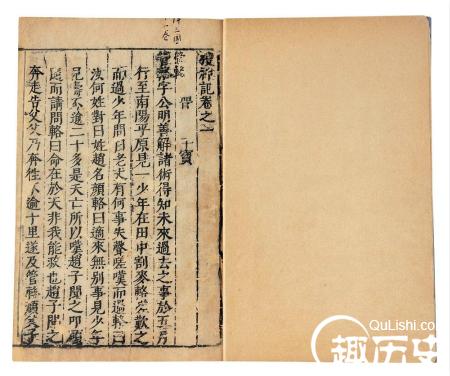 搜神記卷之一
晉 干寶
管輅字公明善解諸術得知未來過去之事於五月
行至南陽平原見一少年在田中割麥輅嗟歎之
而過少年問曰老丈有何事失聲嗟嘆而過輅曰
汝何姓對曰姓趙名顏輅曰適來無別事見少
壽不逾二十多是夭亡所以嘆趙子聞之叩
而請問輅曰命在於天非我能救也趙子聞之
奔走告父父乃奔往不逾十里遂及管輅顏父子
QuLishi.com
趣历史